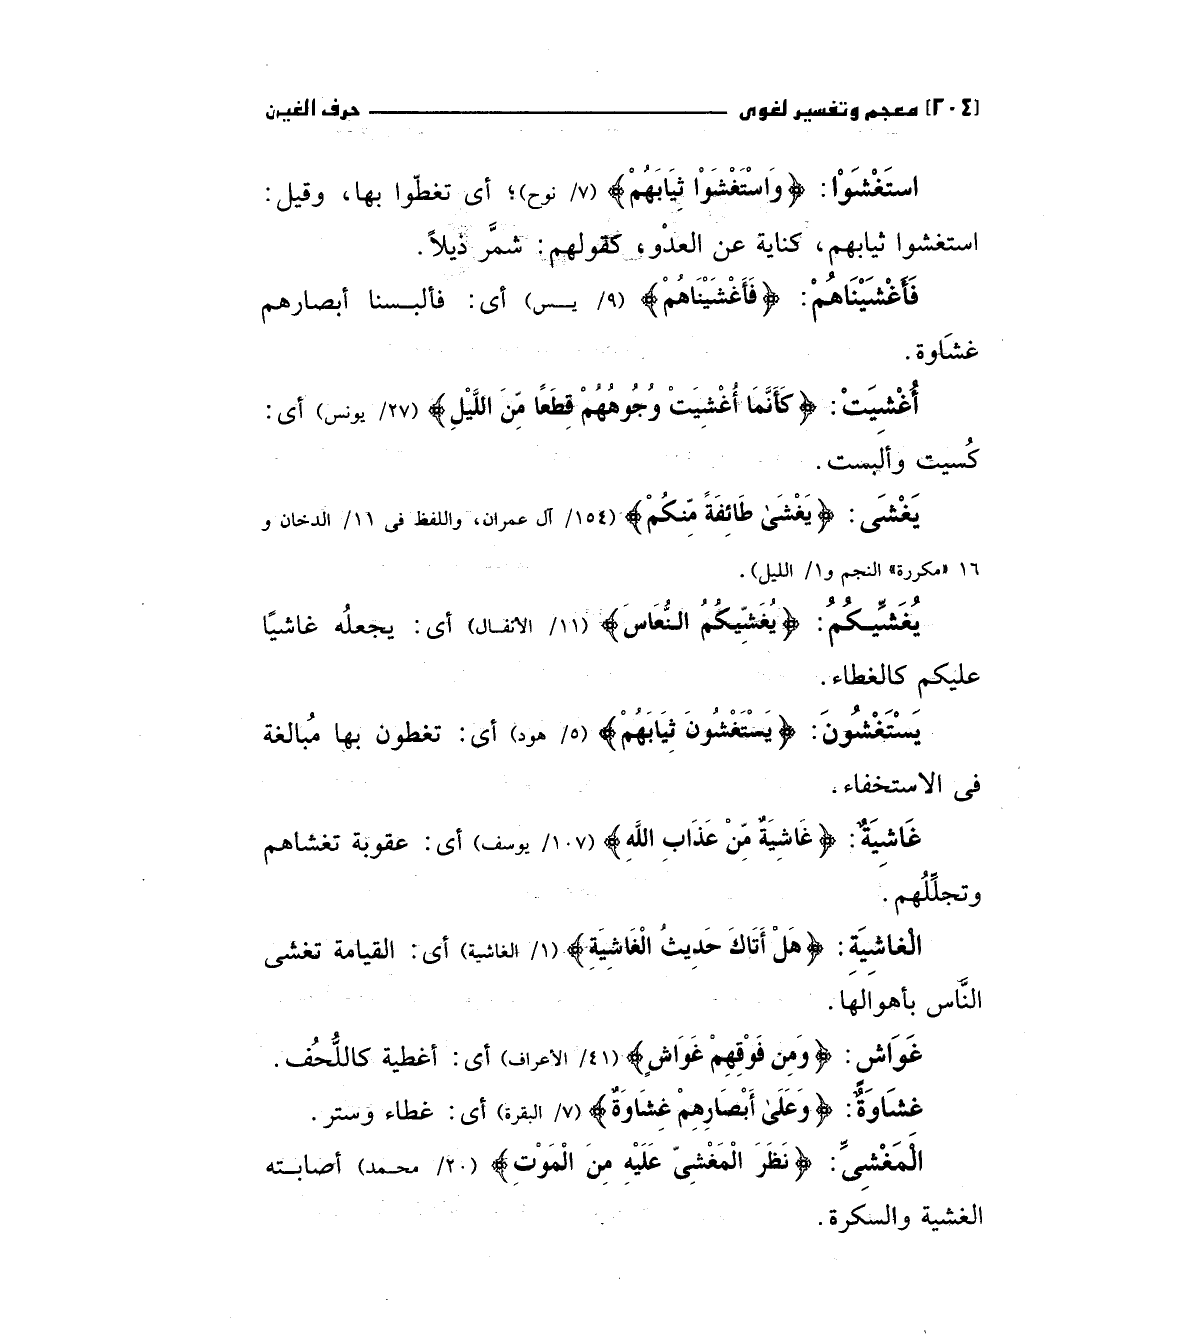 [٢٠٤] معجم وتفسير لغوى ــــــــــ حرف الغين
استَغْشَوْا: ﴿وَاسْتَغْشَوْا ثِيَابَهُمْ﴾ (٧/ نوح)؛ أى تغطّوا بها، وقيل:
استغشوا ثيابهم، كناية عن العدْو، كقولهم: شمَّر ذَيلاً.
فَأَغْشَيْنَاهُمْ: ﴿فَأَغْشَيْنَاهُمْ﴾ (٩/ يـس) أى: فألبسنا أبصارهم
غشَاوة.
أُغْشِيَتْ: ﴿كَأَنَّمَا أُغْشِيَتْ وُجُوهُهُمْ قِطَعًا مِّنَ اللَّيْلِ﴾ (٢٧/ يونس) أى:
كُسيت وألبست.
يَغْشَى: ﴿يَغْشَىٰ طَائِفَةً مِّنكُمْ﴾ (١٥٤/ آل عمران، واللفظ فى ١١/ الدخان و
١٦ «مكررة» النجم و١/ الليل).
يُغَشِّيكُمُ: ﴿يُغَشِّيكُمُ النُّعَاسَ﴾ (١١/ الأنفال) أى: يجعلُه غاشيًا
عليكم كالغطاء.
يَسْتَغْشُونَ: ﴿يَسْتَغْشُونَ ثِيَابَهُمْ﴾ (٥/ هود) أى: تغطون بها مُبالغة
فى الاستخفاء.
غَاشِيَةٌ: ﴿غَاشِيَةٌ مِّنْ عَذَابِ اللَّهِ﴾ (١٠٧/ يوسف) أى: عقوبة تغشاهم
وتجلِّلُهم.
الْغاشِيَةِ: ﴿هَلْ أَتَاكَ حَدِيثُ الْغَاشِيَةِ﴾ (١/ الغاشية) أى: القيامة تغشى
النَّاس بأهوالها.
غَوَاش: ﴿وَمِن فَوْقِهِمْ غَوَاشٍ﴾ (٤١/ الأعراف) أى: أغطية كاللُّحُف.
غشَاوَةٌ: ﴿وَعَلَىٰ أَبْصَارِهِمْ غِشَاوَةٌ﴾ (٧/ البقرة) أى: غطاء وَستر.
الْمَغْشِىِّ: ﴿نَظَرَ الْمَغْشِىّ عَلَيْهِ مِنَ الْمَوْتِ﴾ (٢٠/ محمد) أصابته
الغشية والسكرة.